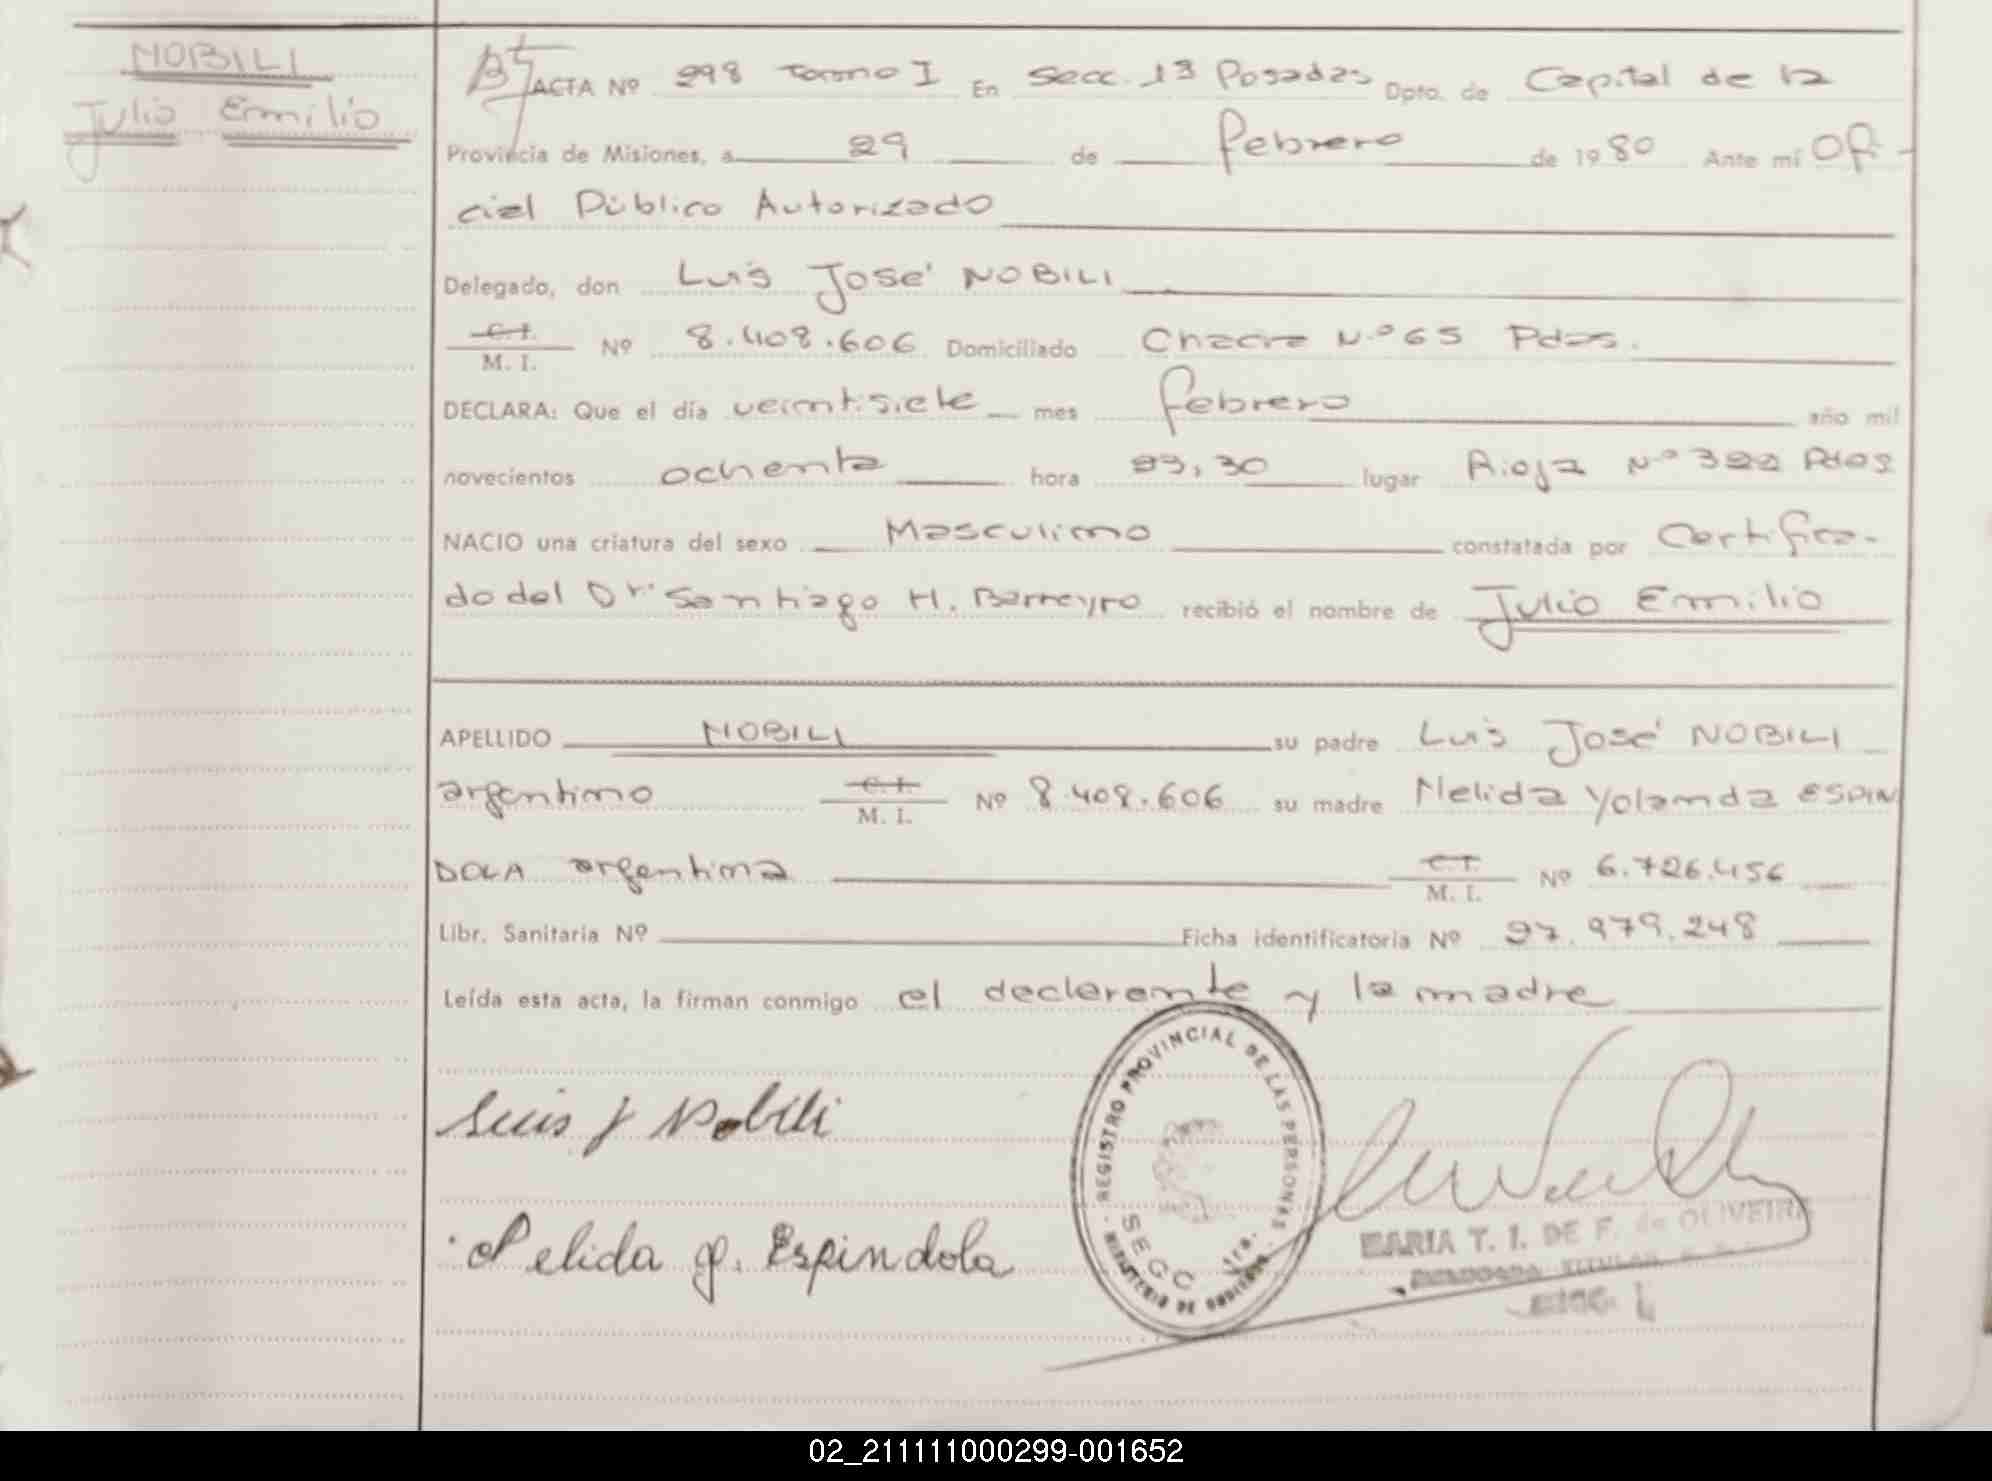 NOBILI
Julio Emilio
ACTA Nº 298 Tomo I En Secc. 1ª Posadas Dpto. de Capital de la
Provincia de Misiones, a 29 de febrero de 1980 Ante mí Ofi-
cial Público Autorizado
Delegado, don Luis José NOBILI
C. I.
M. I. Nº 8.408.606 Domiciliado Chacra N.º 65 Pdas.
DECLARA: Que el día veintisiete mes febrero año mil
novecientos ochenta hora 23,30 lugar Rioja Nº 322 Pdas
NACIO una criatura del sexo Masculino constatada por Certifica-
do del Dr. Santiago H. Barreyro recibió el nombre de Julio Emilio
APELLIDO NOBILI su padre Luis José NOBILI
argentino C. I. M. I. Nº 8.408.606 su madre Nelida Yolanda ESPIN
DOLA argentina C. I. M. I. Nº 6.726.456
Libr. Sanitaria Nº Ficha identificatoria Nº 27.979.248
Leída esta acta, la firman conmigo el declarante y la madre
Luis J Nobili
Nelida Y. Espindola
REGISTRO PROVINCIAL DE LAS PERSONAS
MINISTERIO DE GOBIERNO
SECC 1ra.
MARIA T. I. DE F. de OLIVEIRA
TITULAR
02_211111000299-001652